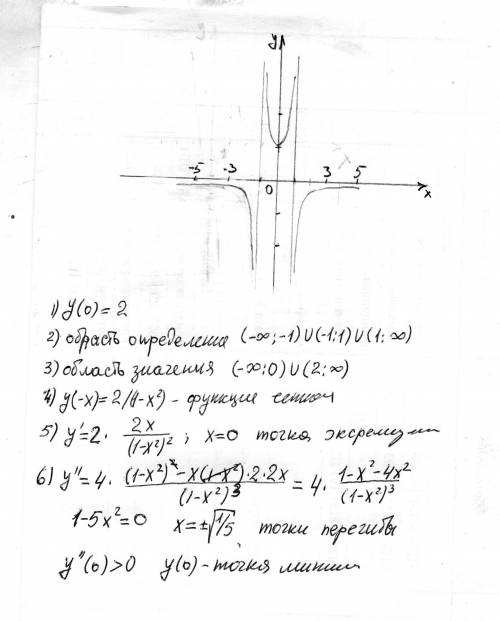 y
-5 -3 0 3 5 x
1) y(0) = 2
2) область определения (-∞;-1)∪(-1;1)∪(1;∞)
3) область значения (-∞;0)∪(2;∞)
4) y(-x)=2/(1-x²) - функция четная
5) y'=2· 2x/(1-x²)²; x=0 точка экстремума
6) y''=4· ((1-x²)² - x(1-x²)·2·2x)/(1-x²)³ = 4· (1-x²-4x²)/(1-x²)³
1-5x²=0 x=±√1/5 точки перегибы
y''(0)>0 y(0)-точка миним